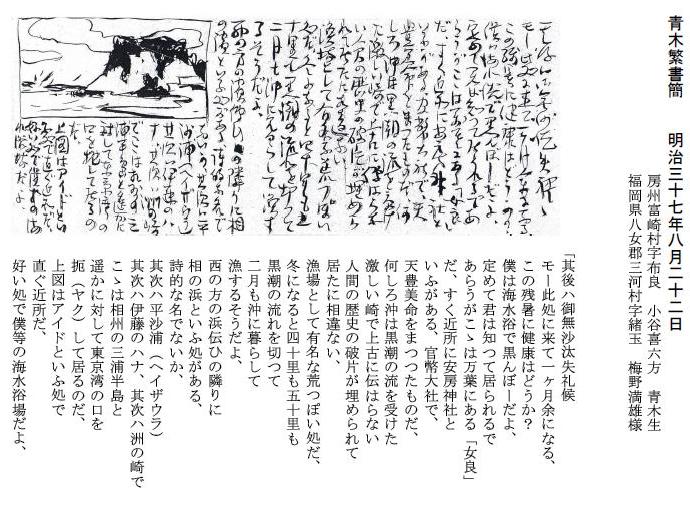 青木繁書簡　明治三十七年八月二十二日
房州富崎村字布良　小谷喜六方　青木生
福岡県八女郡三河村字緒玉　梅野満雄様
「其後ハ御無沙汰失礼候
モー此処に来て一ヶ月余になる、
この残暑に健康はどうか？
僕は海水浴で黒んぼーだよ、
定めて君は知つて居られるで
あらうがこゝは万葉にある「女良」
だ、すく近所に安房神社と
いふがある、官幣大社で、
天豊美命をまつつたものだ、
何しろ沖は黒潮の流を受けた
激しい崎で上古に伝はらない
人間の歴史の破片が埋められて
居たに相違ない、
漁場として有名な荒つぽい処だ、
冬になると四十里も五十里も
黒潮の流れを切つて
二月も沖に暮らして
漁するそうだよ、
西の方の浜伝ひの隣りに
相の浜といふ処がある、
詩的な名でないか、
其次ハ平沙浦（ヘイザウラ）
其次ハ伊藤のハナ、其次ハ洲の崎で
こゝは相州の三浦半島と
遥かに対して東京湾の口を
扼（ヤク）して居るのだ、
上図はアイドといふ処で
直ぐ近所だ、
好い処で僕等の海水浴場だよ、